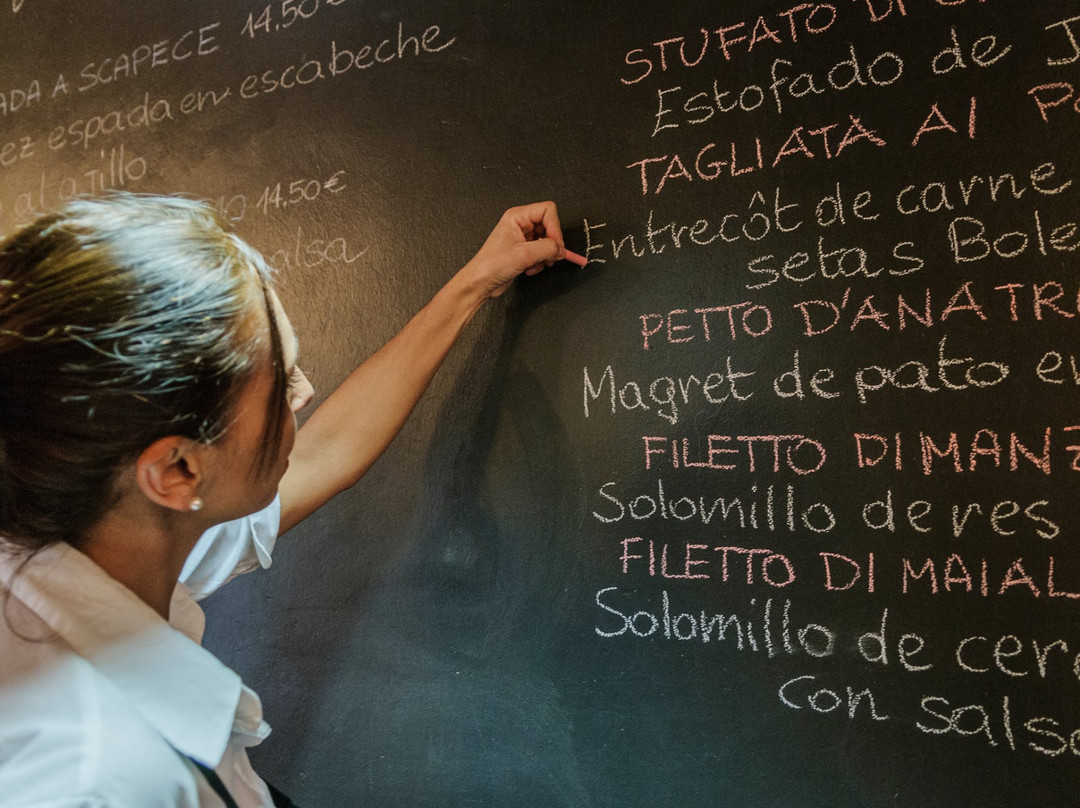 14.50
ADA A SCAPECE
ez espada en escabeche
al ajillo
14.50€
alsa
STUFATO DI
Estofado de J
TAGLIATA AI P
Entrecôt de carne
setas Bole
PETTO D'ANATR
Magret de pato e
FILETTO DI MANZ
Solomillo de res
FILETTO DI MAIAL
Solomillo de cer
con salsa